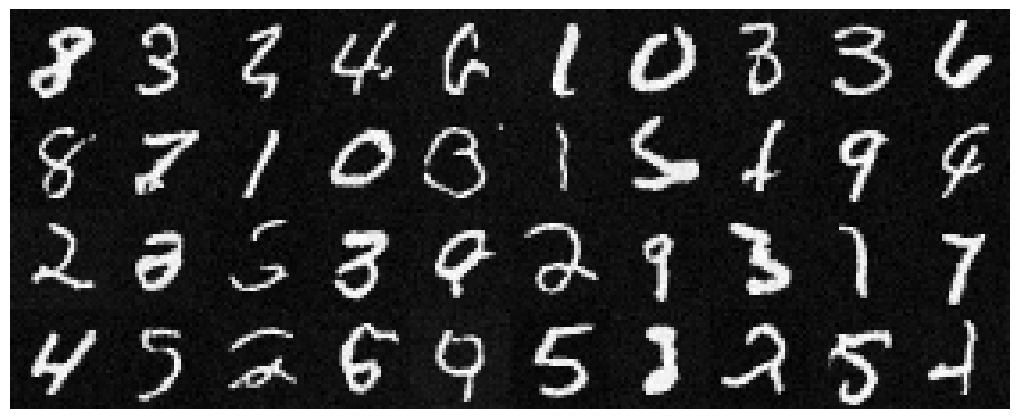 8 3 3 4 6 1 0 3 3 6
8 7 1 0 1 5 1 9 9
2 3 5 3 9 2 9 3 1 7
4 5 2 6 9 5 8 2 5 1